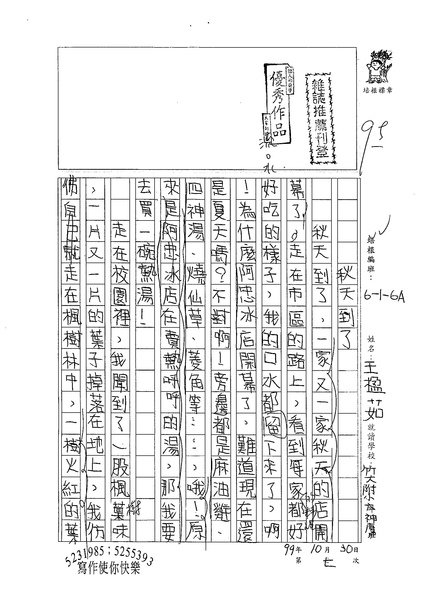 培根標章
95
雜誌推薦刊登
優秀作品
培根編班：6-1-6A
姓名：王楹茹
就讀學校：竹大附
99年10月30日
第七次
秋天到了
秋天到了，一家又一家秋天的店開
幕了。走在市區的路上，看到每家都好
好吃的樣子，我的口水都留下來了。啊
！為什麼阿忠冰店開幕了，難道現在還
是夏天嗎？不對啊！旁邊都是麻油雞、
四神湯、燒仙草、菱角等……，哦！原
來是阿忠冰店在賣熱呼呼的湯，那我要
去買一碗熱湯！
走在校園裡，我聞到了一股楓葉味
，一片又一片的葉子掉落在地上，我彷
彿自己就走在楓樹林中，一樹火紅的葉
5231985；5255393
寫作使你快樂